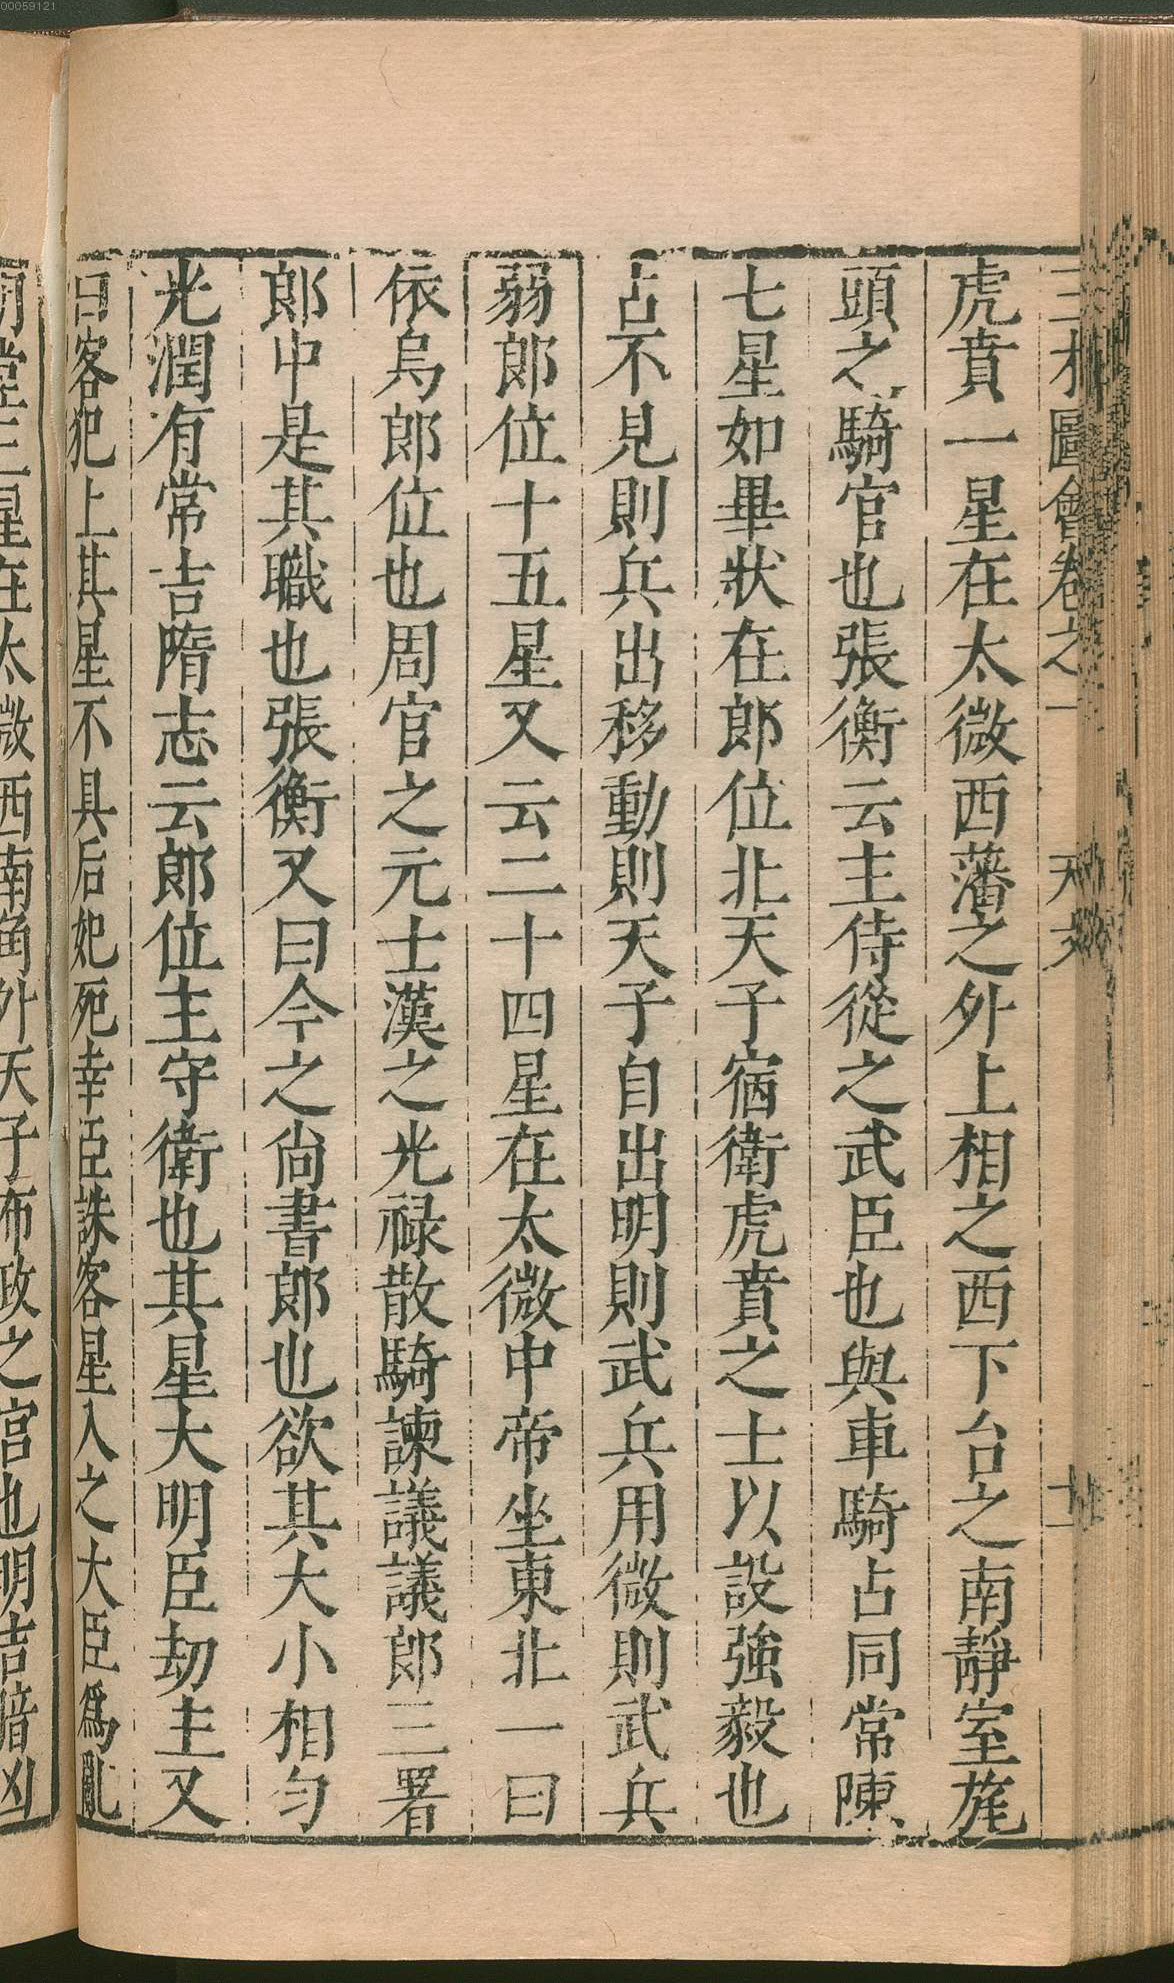 00059121
三才圖會卷之一 天文
虎賁一星在太微西藩之外上相之西下台之南靜室旄
頭之騎官也張衡云主侍從之武臣也與車騎占同常陳
七星如畢狀在郎位北天子宿衛虎賁之士以設強毅也
占不見則兵出移動則天子自出明則武兵用微則武兵
弱郎位十五星又云二十四星在太微中帝坐東北一曰
依烏郎位也周官之元士漢之光祿散騎諫議議郎三署
郎中是其職也張衡又曰今之尙書郎也欲其大小相勻
光潤有常吉隋志云郎位主守衛也其星大明臣劫主又
曰客犯上其星不具后妃死幸臣誅客星入之大臣爲亂
明堂三星在太微西南角外天子布政之宮也明吉暗凶